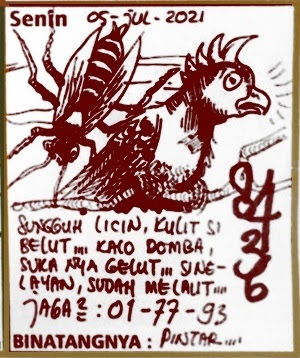 Senin 05-JUL-2021
SUNGGUH LICIN, KULIT SI
BELUT,,, KALO DOMBA,
SUKA NYA GELUT,,, SING-
LAYAN, SUDAH MELAUT,,,
JAGA2 : 01-77-93
BINATANGNYA : PINTAR,,,,